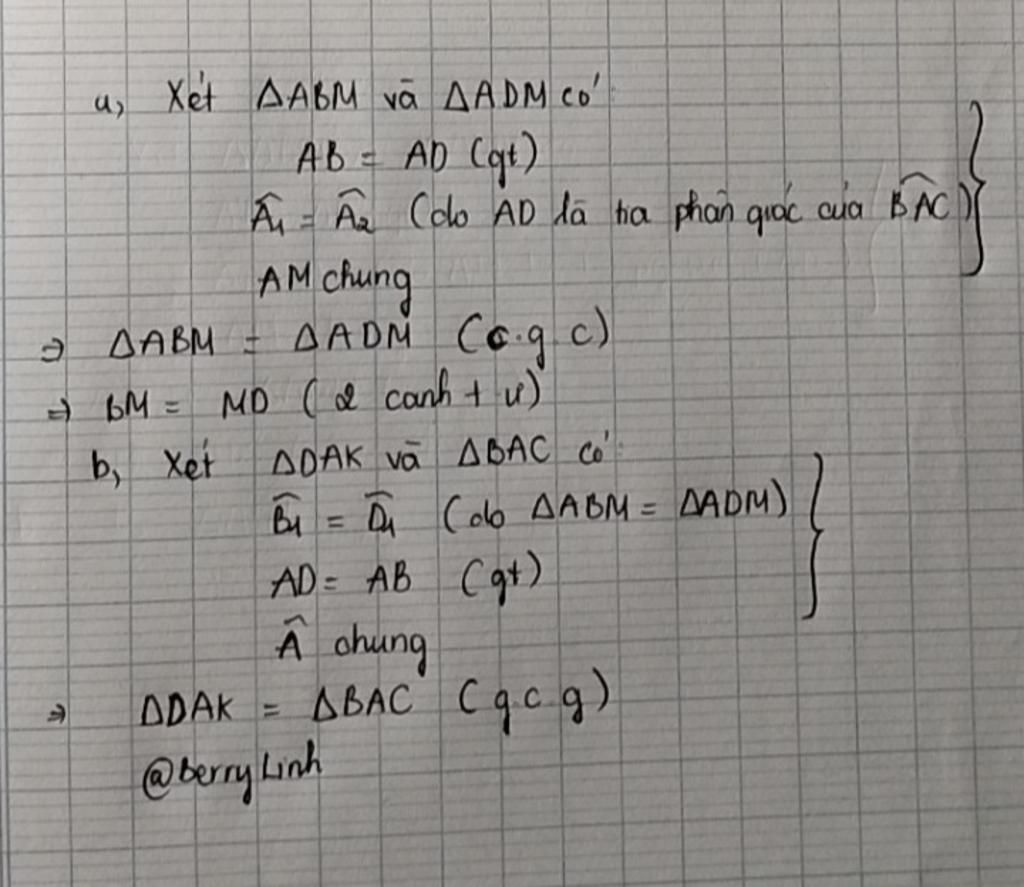 a, Xét ΔABM và ΔADM có
AB = AD (gt)
Â₁ = Â₂ (do AD là tia phân giác của BAC)
AM chung
⇒ ΔABM = ΔADM (c.g c)
⇒ BM = MD (2 cạnh t ư)
b, Xét ΔDAK và ΔBAC có:
B̂₁ = D̂₁ (do ΔABM = ΔADM)
AD = AB (gt)
Â chung
⇒ ΔDAK = ΔBAC (g c g)
@berryLinh